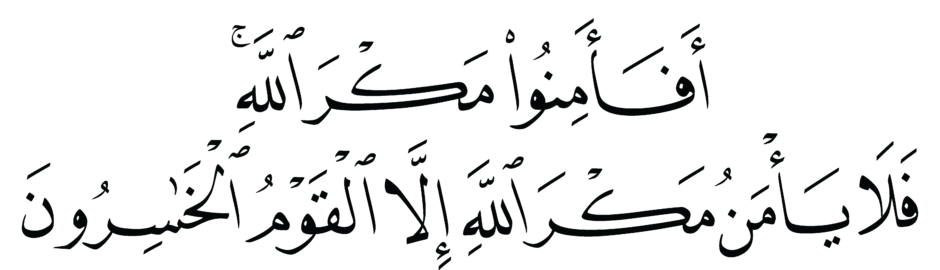 أَفَأَمِنُوا۟ مَكْرَ ٱللَّهِ ۚ
فَلَا يَأْمَنُ مَكْرَ ٱللَّهِ إِلَّا ٱلْقَوْمُ ٱلْخَـٰسِرُونَ